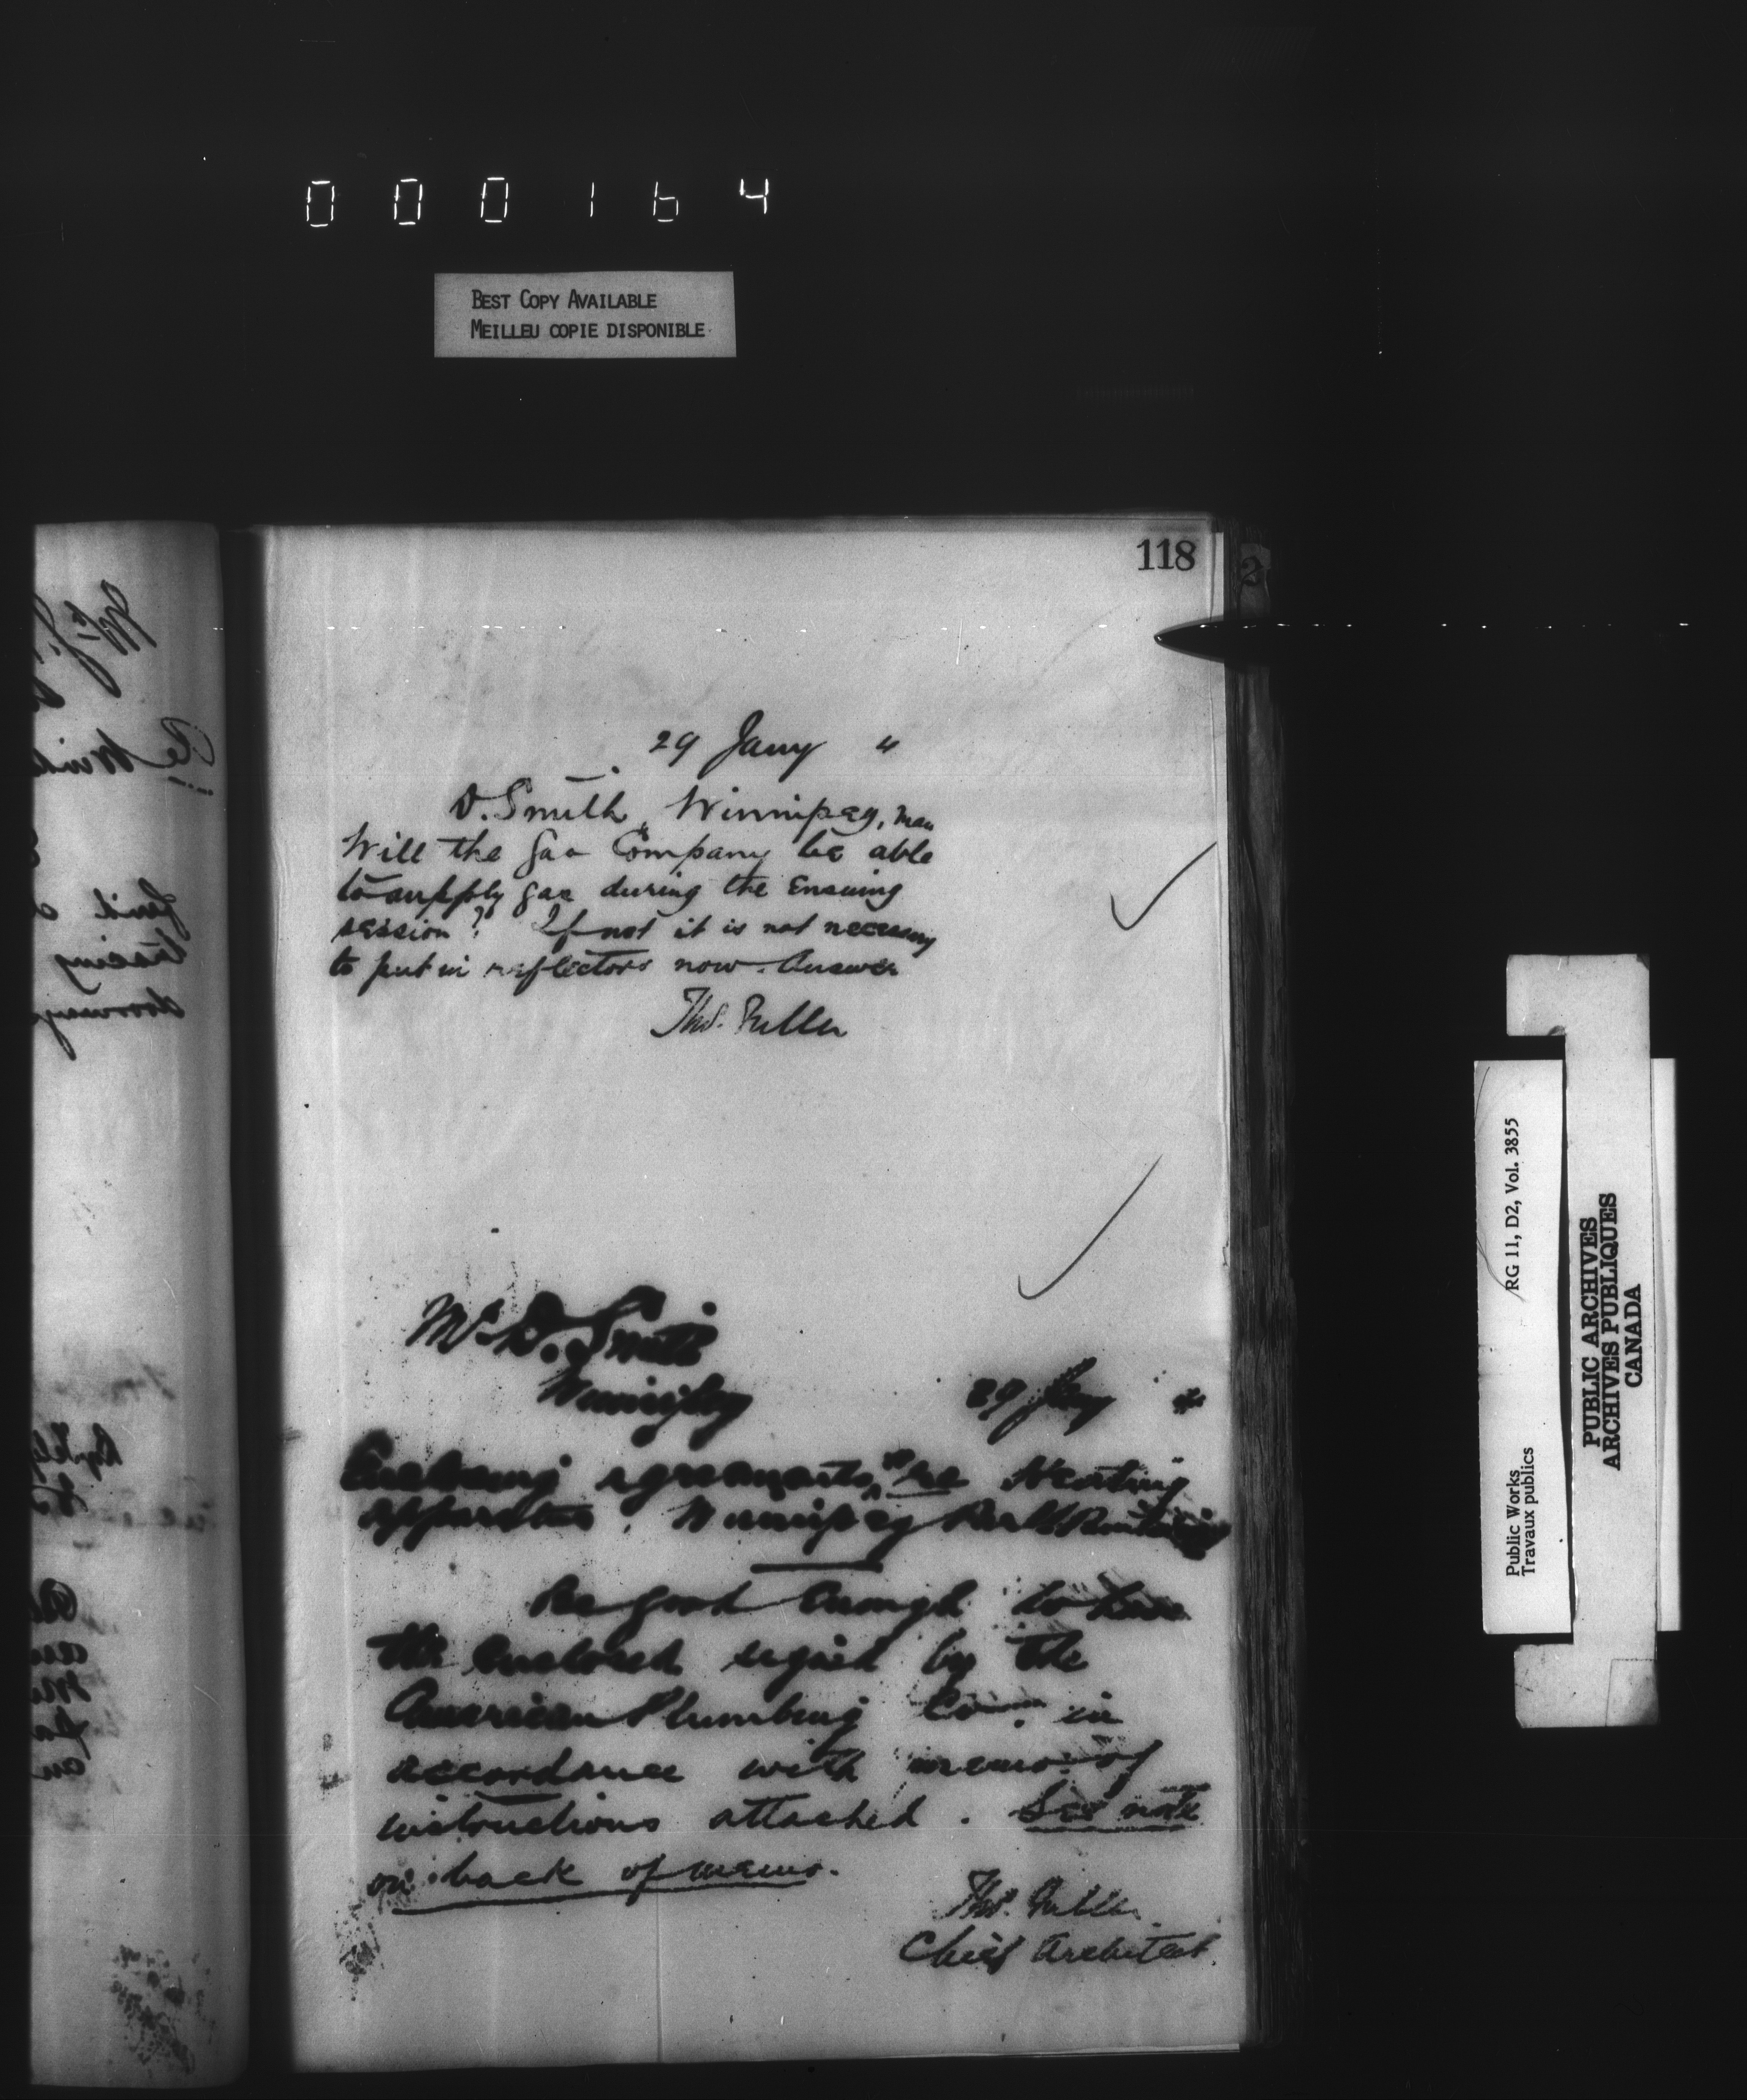 000164
BEST COPY AVAILABLE
MEILLEU COPIE DISPONIBLE
118
2
29 Jany 4
D. Smith, Winnipeg, Man
Will the Gas Company be able
to supply gas during the ensuing
session? If not it is not necessary
to put in reflectors now. Answer
Thos. Fuller
Mr D. Smith
Winnipeg
29 Jany 4
Enclosing agreements re Heating
apparatus, Winnipeg Parlt Building
Be good enough to have
the enclosed signed by the
American Plumbing Co. in
accordance with memo. of
instructions attached. See note
on back of memo.
Thos. Fuller
Chief Architect.
RG 11, D2, Vol. 3855
Public Works
Travaux publics
PUBLIC ARCHIVES
ARCHIVES PUBLIQUES
CANADA